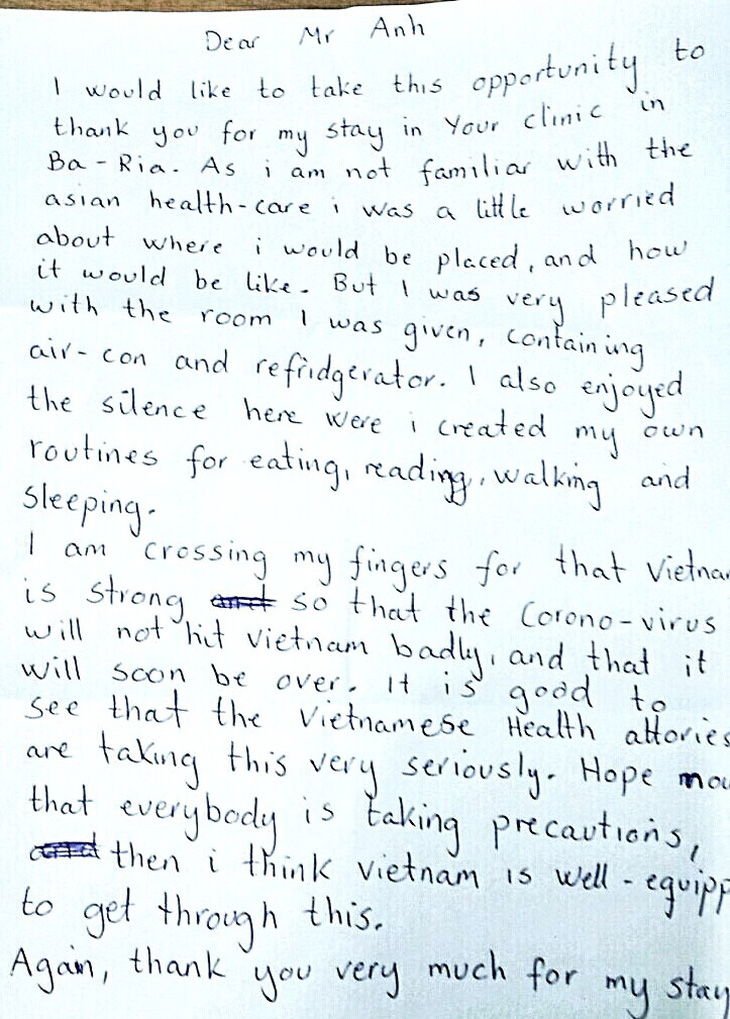 Dear Mr Anh
I would like to take this opportunity to
thank you for my stay in Your clinic in
Ba-Ria. As i am not familiar with the
asian health-care i was a little worried
about where i would be placed, and how
it would be like. But I was very pleased
with the room I was given, containing
air-con and refridgerator. I also enjoyed
the silence here were i created my own
routines for eating, reading, walking and
sleeping.
I am crossing my fingers for that Vietna
is strong so that the Corono-virus
will not hit vietnam badly, and that it
will soon be over. It is good to
see that the Vietnamese Health attories
are taking this very seriously. Hope mou
that everybody is taking precautions,
then i think vietnam is well-equipp
to get through this.
Again, thank you very much for my stay